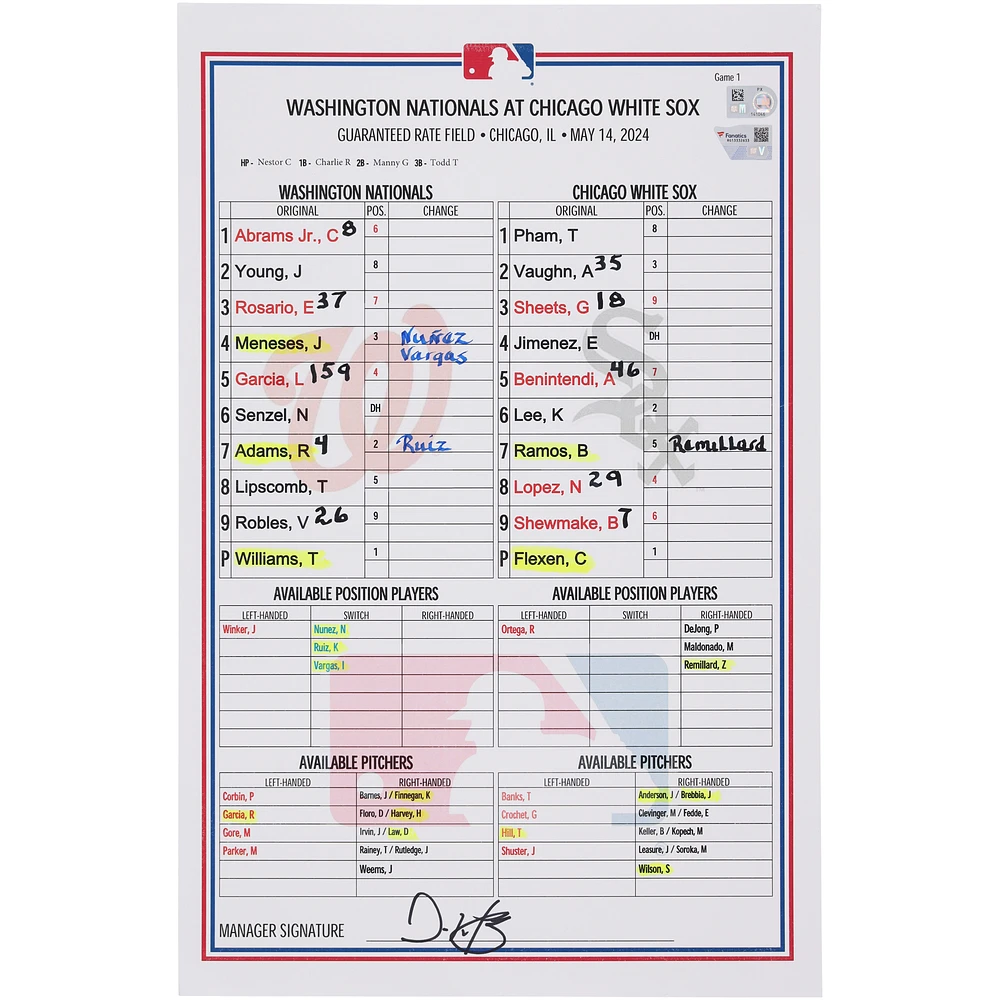 Game 1
WASHINGTON NATIONALS AT CHICAGO WHITE SOX
GUARANTEED RATE FIELD • CHICAGO, IL • MAY 14, 2024
Fanatics
HP - Nestor C 1B - Charlie R 2B - Manny G 3B - Todd T
WASHINGTON NATIONALS
ORIGINAL POS. CHANGE
1 Abrams Jr., C 8 6
2 Young, J 8
3 Rosario, E 37 7
4 Meneses, J 3 Nuñez
Vargas
5 Garcia, L 159 4
6 Senzel, N DH
7 Adams, R 4 2 Ruiz
8 Lipscomb, T 5
9 Robles, V 26 9
P Williams, T 1
CHICAGO WHITE SOX
ORIGINAL POS. CHANGE
1 Pham, T 8
2 Vaughn, A 35 3
3 Sheets, G 18 9
4 Jimenez, E DH
5 Benintendi, A 46 7
6 Lee, K 2
7 Ramos, B 5 Remillard
8 Lopez, N 29 4
9 Shewmake, B 7 6
P Flexen, C 1
AVAILABLE POSITION PLAYERS
LEFT-HANDED SWITCH RIGHT-HANDED
Winker, J Nunez, N
Ruiz, K
Vargas, I
AVAILABLE POSITION PLAYERS
LEFT-HANDED SWITCH RIGHT-HANDED
Ortega, R DeJong, P
Maldonado, M
Remillard, Z
AVAILABLE PITCHERS
LEFT-HANDED RIGHT-HANDED
Corbin, P Barnes, J / Finnegan, K
Garcia, R Floro, D / Harvey, H
Gore, M Irvin, J / Law, D
Parker, M Rainey, T / Rutledge, J
Weems, J
AVAILABLE PITCHERS
LEFT-HANDED RIGHT-HANDED
Banks, T Anderson, J / Brebbia, J
Crochet, G Clevinger, M / Fedde, E
Hill, T Keller, B / Kopech, M
Shuster, J Leasure, J / Soroka, M
Wilson, S
MANAGER SIGNATURE